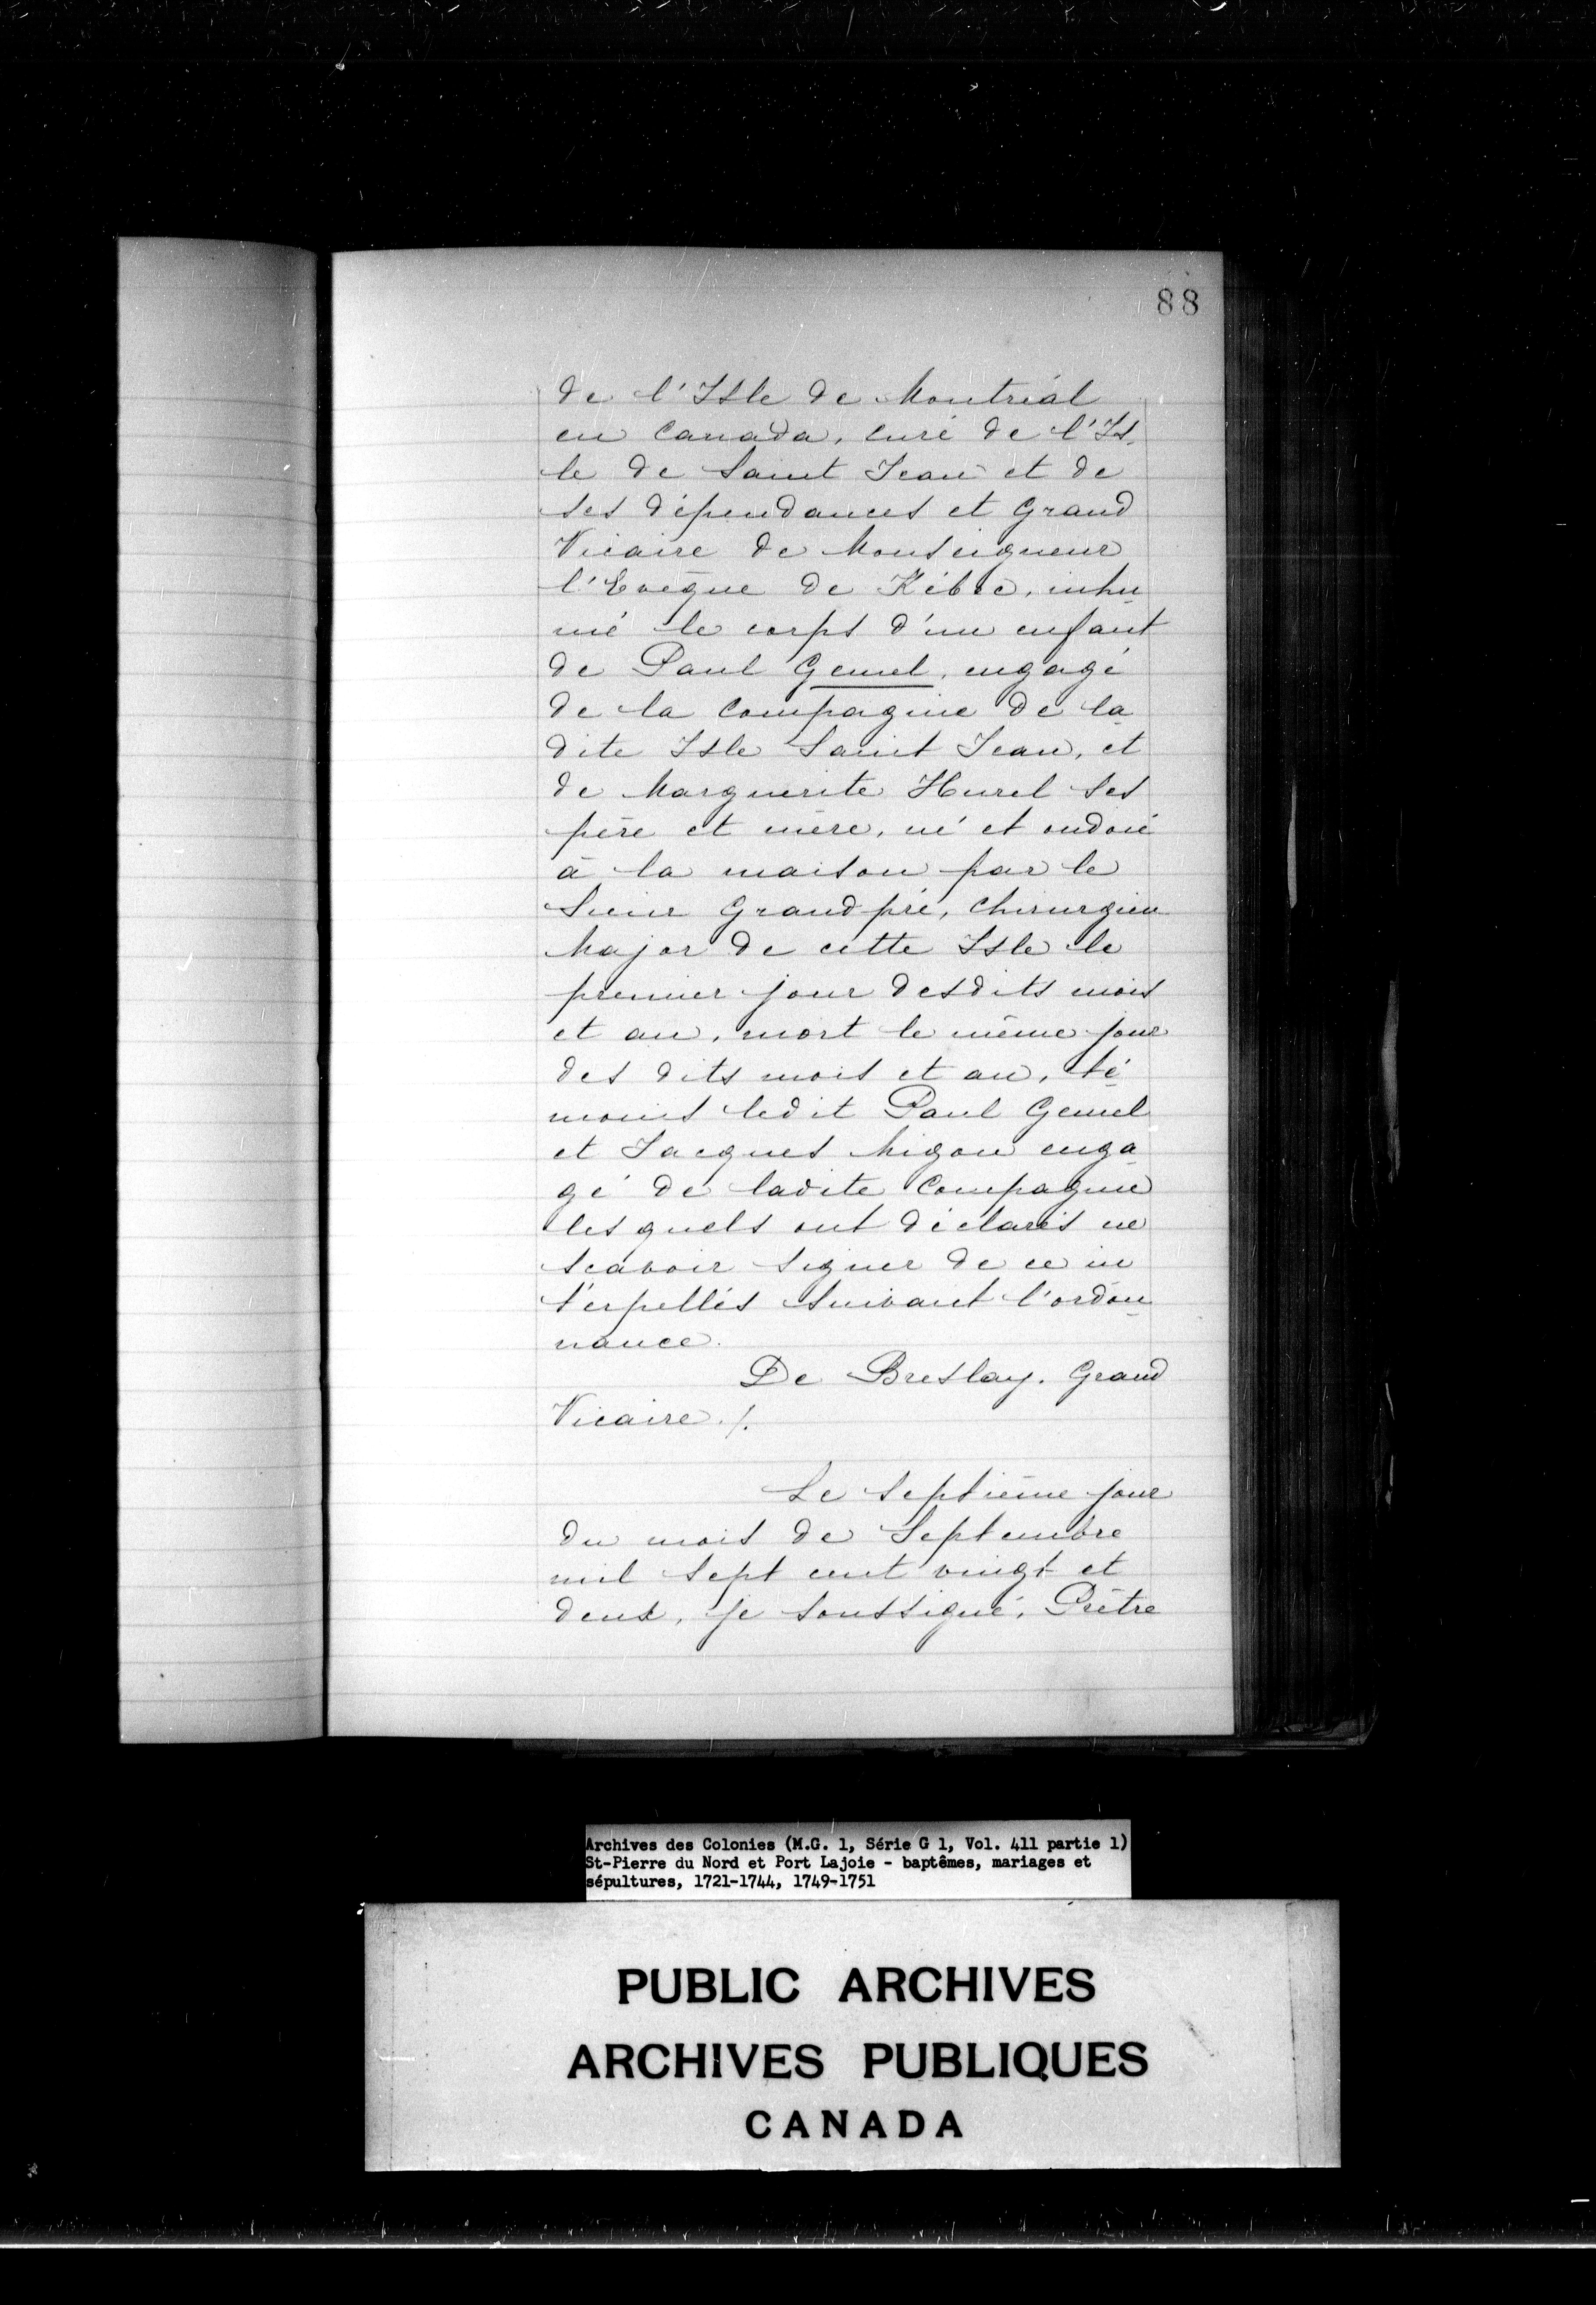 88
de l'Isle de Montréal
en Canada, curé de l'Is-
le de Saint Jean et de
ses dépendances et Grand
Vicaire de Monseigneur
l'Evêque de Kébec, inhu-
mé le corps d'un enfant
de Paul Gemel, engagé
de la Compagnie de la-
dite Isle Saint Jean, et
de Marguerite Hurel ses
père et mère, né et ondoié
à la maison par le
Sieur Grandpré, Chirurgien
Major de cette Isle le
premier jour desdits mois
et an, mort le même jour
des dits mois et an, té-
moins ledit Paul Gemel
et Jacques Migou enga-
gé de ladite Compagnie
lesquels ont déclarés ne
scavoir signer de ce in
terpellés suivant l'ordon-
nance.
De Breslay. Grand
Vicaire ./.
Le septième jour
du mois de Septembre
mil sept cent vingt et
deux, je soussigné, Prêtre
Archives des Colonies (M.G. 1, Série G 1, Vol. 411 partie 1)
St-Pierre du Nord et Port Lajoie - baptêmes, mariages et
sépultures, 1721-1744, 1749-1751
PUBLIC ARCHIVES
ARCHIVES PUBLIQUES
CANADA